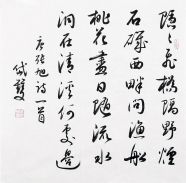 隱隱飛橋隔野煙
石磯西畔問漁船
桃花盡日隨流水
洞在清溪何處邊
唐張旭詩一首